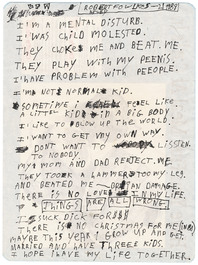 I'M A MENTAL DISTURB.
I WAS CHILD MOLESTED.
THEY CHOKES ME AND BEAT ME.
THEY PLAY WITH MY PEENIS.
I HAVE PROBLEM WITH PEEOPLE.
I'M NOT NORMAL KID.
SOMETIME I FEEL LIFE
A LITTEL KID IN A BIG BODY.
I LIKE TO BLOW UP THE WORLD.
I WANT TO GET MY OWN WAY.
DONT WANT TO LISSTEN
TO NOBODY.
MY MOM AND DAD REJECT ME.
THEY TOOOK A LAMMERS TOO MY LEG.
AND BEATED ME DAMAGE.
THERE IS NO LOVE IN MY LIFE.
THINGS ARE ALL WRONG.
I SUCK DICK FOR $$$
THERE IS NO CHRISTMAS FOR ME
MAYBE THIS YEAR I GROW UP AND GET
MARRIED AND HAVE THREEE KIDS.
I HOPE I HAVE MY LIFE TOGETHER.